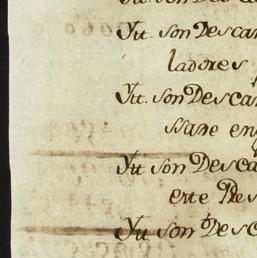 Ytt. son Descar
ladores
Ytt. son Descar
ssare en
Ytt son Desca
erte Des
Ytt son Desc